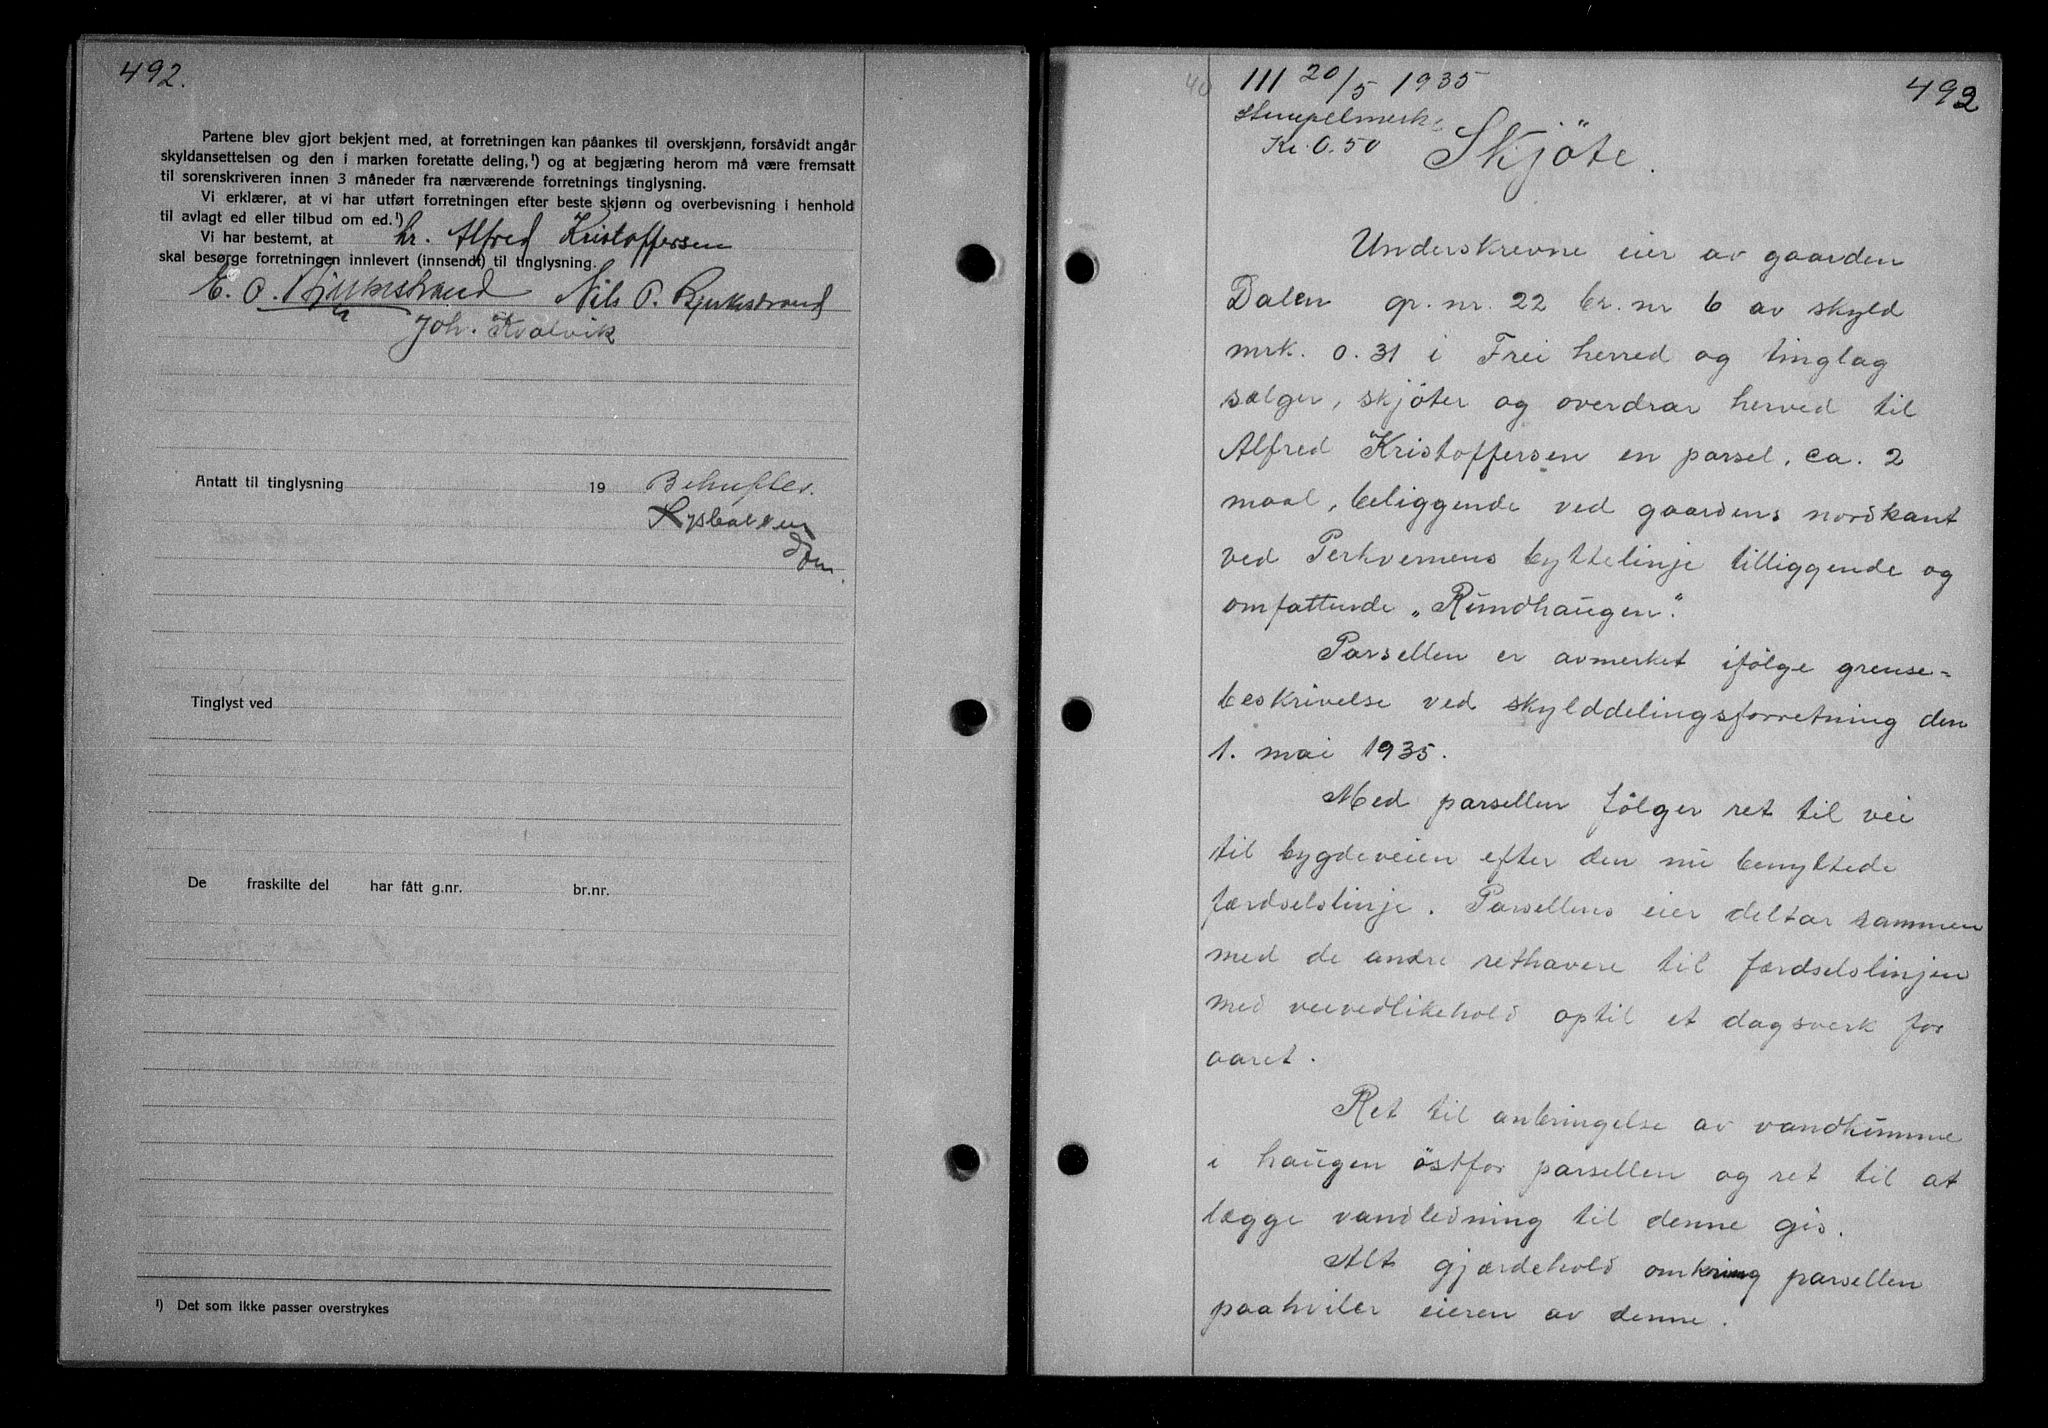 492.
Partene blev gjort bekjent med, at forretningen kan påankes til overskjønn, forsåvidt angår
skyldansettelsen og den i marken foretatte deling,¹) og at begjæring herom må være fremsatt
til sorenskriveren innen 3 måneder fra nærværende forretnings tinglysning.
Vi erklærer, at vi har utført forretningen efter beste skjønn og overbevisning i henhold
til avlagt ed eller tilbud om ed.¹)
Vi har bestemt, at hr. Alfred Kristoffersen
skal besørge forretningen innlevert (innsendt) til tinglysning.
E. O. Bjerkestrand Nils P. Bjerkestrand
Joh. Kvalvik
Antatt til tinglysning 19
Tinglyst ved
De fraskilte del har fått g.nr. br.nr.
¹) Det som ikke passer overstrykes
492
111 20/5 1935
Stempelmerke
Kr. 0.50
Skjöte.
Underskrevne eier av gaarden
Dalen gr. nr. 22 br. nr 6 av skyld
mrk. 0.31 i Frei herred og tinglag
sælger, skjöter og overdrar herved til
Alfred Kristoffersen en parsel, ca. 2
maal, beliggende ved gaardens nordkant
ved Perkvernens byttelinje tilliggende og
omfattende „Rundhaugen".
Parsellen er avmerket ifölge grense-
beskrivelse ved skylddelingsforretning den
1. mai 1935.
Med parsellen fölger ret til vei
til bygdeveien efter den nu benyttede
færdselslinje. Parsellens eier deltar sammen
med de andre rethavere til færdselslinjen
med veivedlikehold optil et dagsverk for
aaret.
Ret til anbringelse av vandkumme
i haugen östfor parsellen og ret til at
lægge vandledning til denne gis.
Alt gjærdehold omkring parsellen
paahviler eieren av denne.